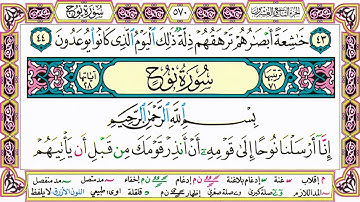 سورة نوح ٥٧٠ الجزء التاسع والعشرون
٤٣ خَٰشِعَةً أَبْصَٰرُهُمْ تَرْهَقُهُمْ ذِلَّةٌ ذَٰلِكَ ٱلْيَوْمُ ٱلَّذِى كَانُوا۟ يُوعَدُونَ ٤٤
ترتيبها ٧١ سُورَةُ نُوحٍ آياتها ٢٨
بِسْمِ ٱللَّهِ ٱلرَّحْمَٰنِ ٱلرَّحِيمِ
إِنَّآ أَرْسَلْنَا نُوحًا إِلَىٰ قَوْمِهِۦٓ أَنْ أَنذِرْ قَوْمَكَ مِن قَبْلِ أَن يَأْتِيَهُمْ